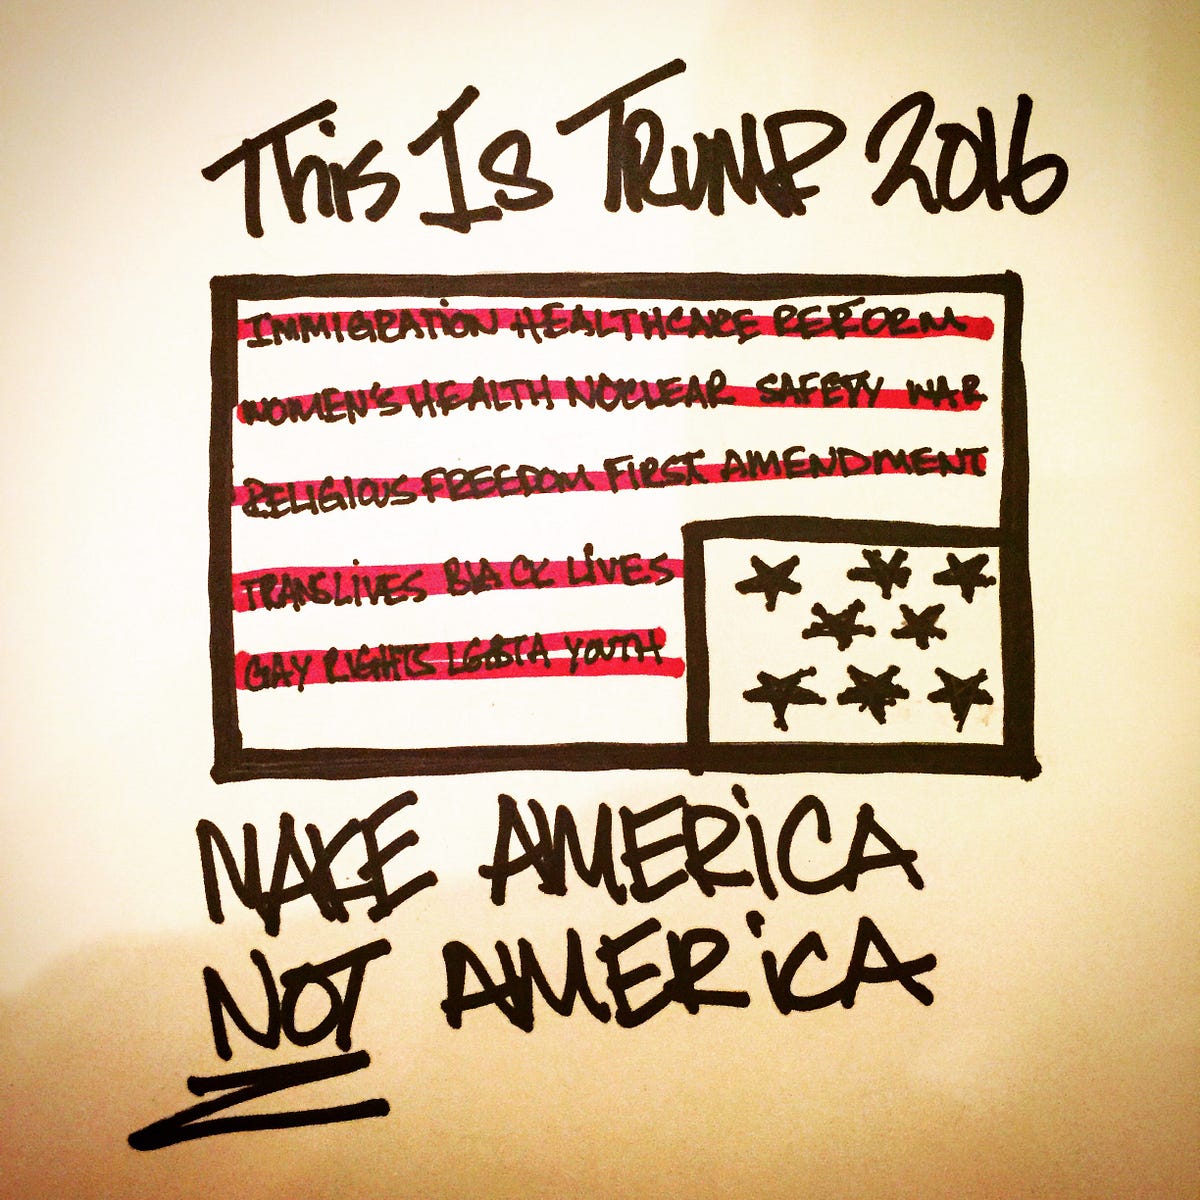 This Is TRUMP 2016
IMMIGRATION HEALTHCARE REFORM
WOMEN'S HEALTH NUCLEAR SAFETY WAR
RELIGIOUS FREEDOM FIRST AMENDMENT
TRANSLIVES BLACK LIVES
GAY RIGHTS LGBTA YOUTH
MAKE AMERiCA
NOT AMERiCA